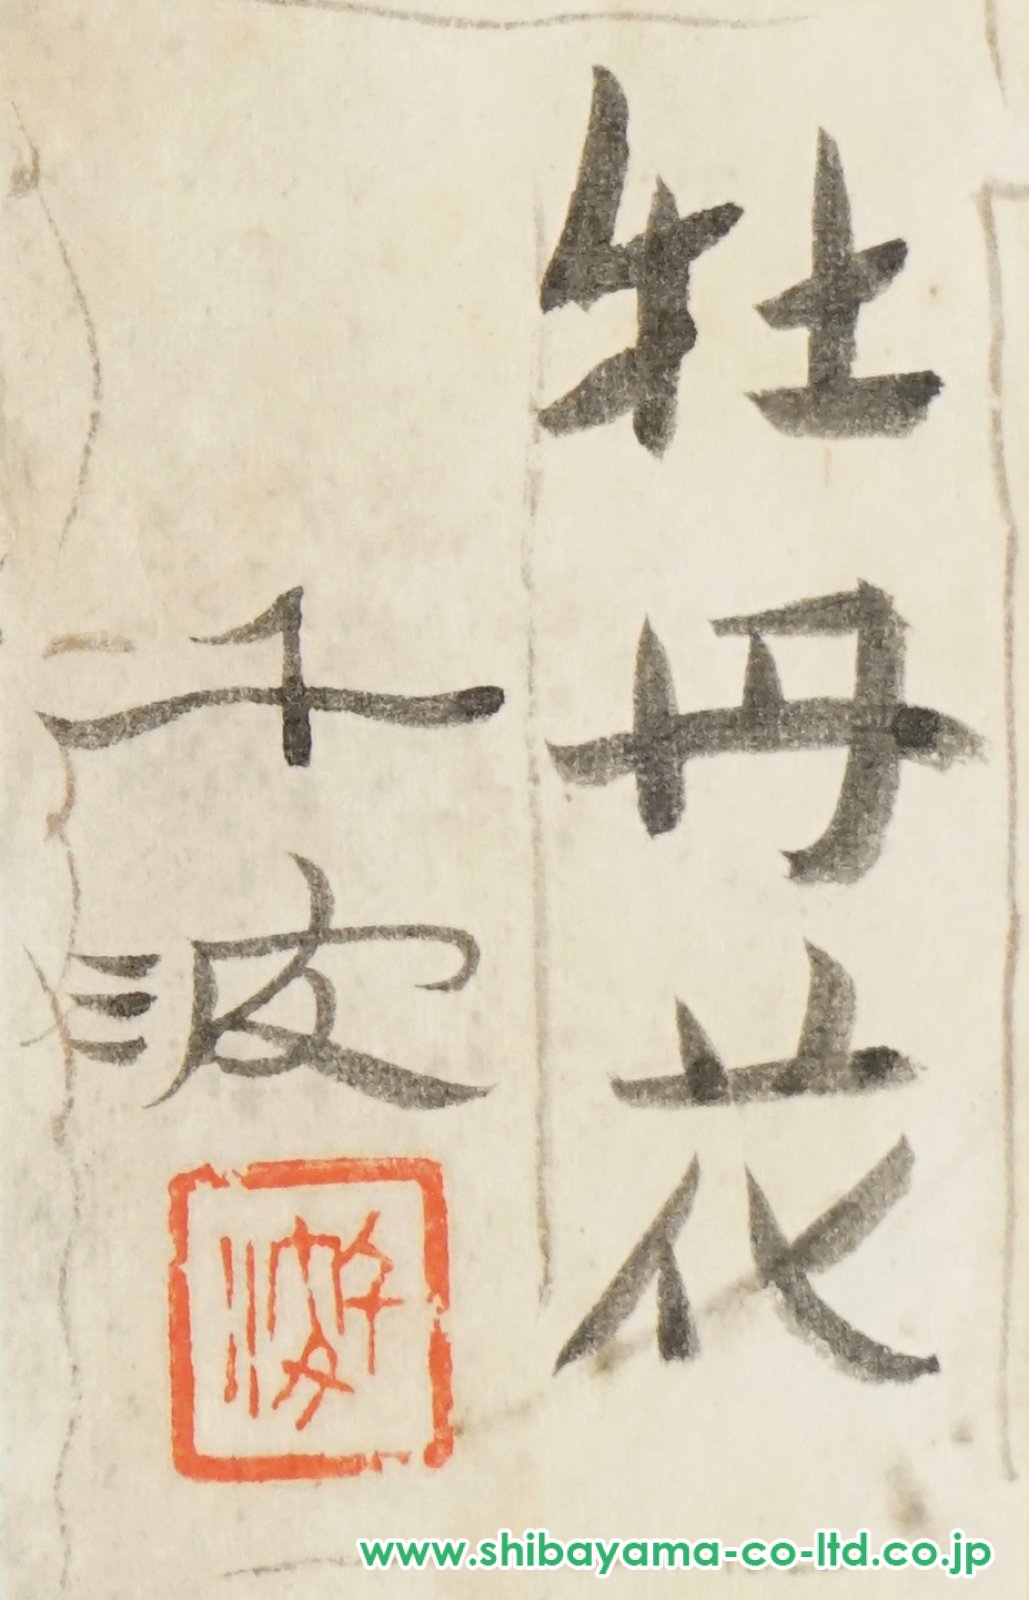 牡丹花
千波
千波
www.shibayama-co-ltd.co.jp